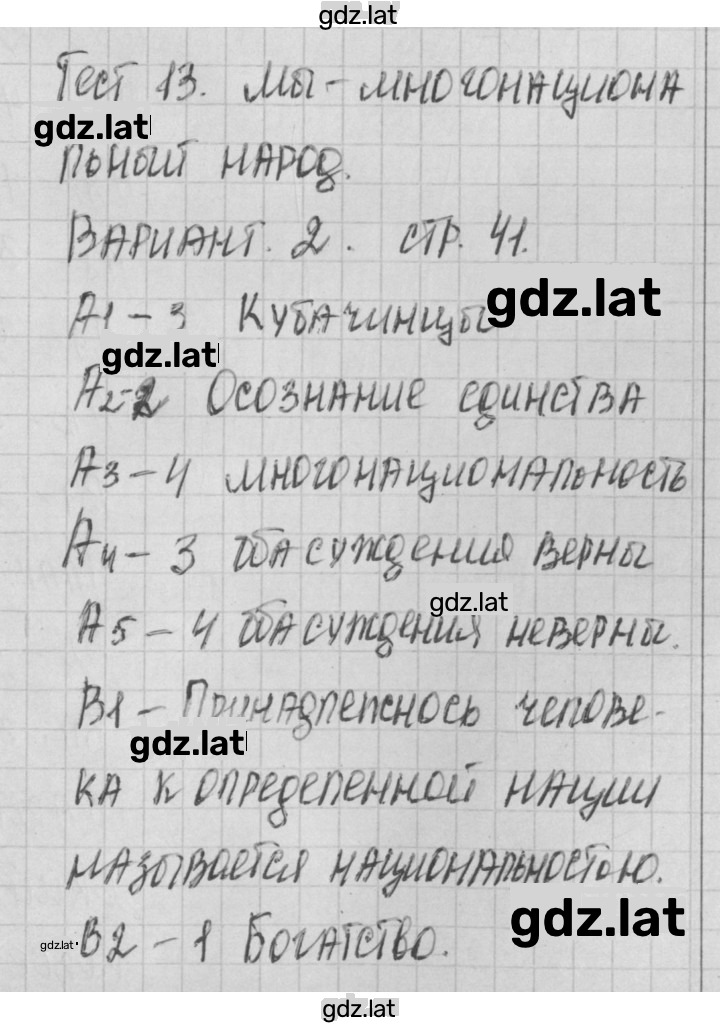 gdz.lat
Тест 13. Мы - многонациона
gdz.lat
льный народ.
Вариант. 2. стр. 41.
gdz.lat
А1 - 3 Кубачинцы
gdz.lat
А2-2 Осознание единства
А3 - 4 многонациональность
А4 - 3 оба суждения верны
gdz.lat
А5 - 4 оба суждения неверны.
В1 - Принадлежнось челове-
gdz.lat
ка к определенной нации
называется национальностью.
gdz.lat
gdz.lat
В2 - 1 Богатство.
gdz.lat